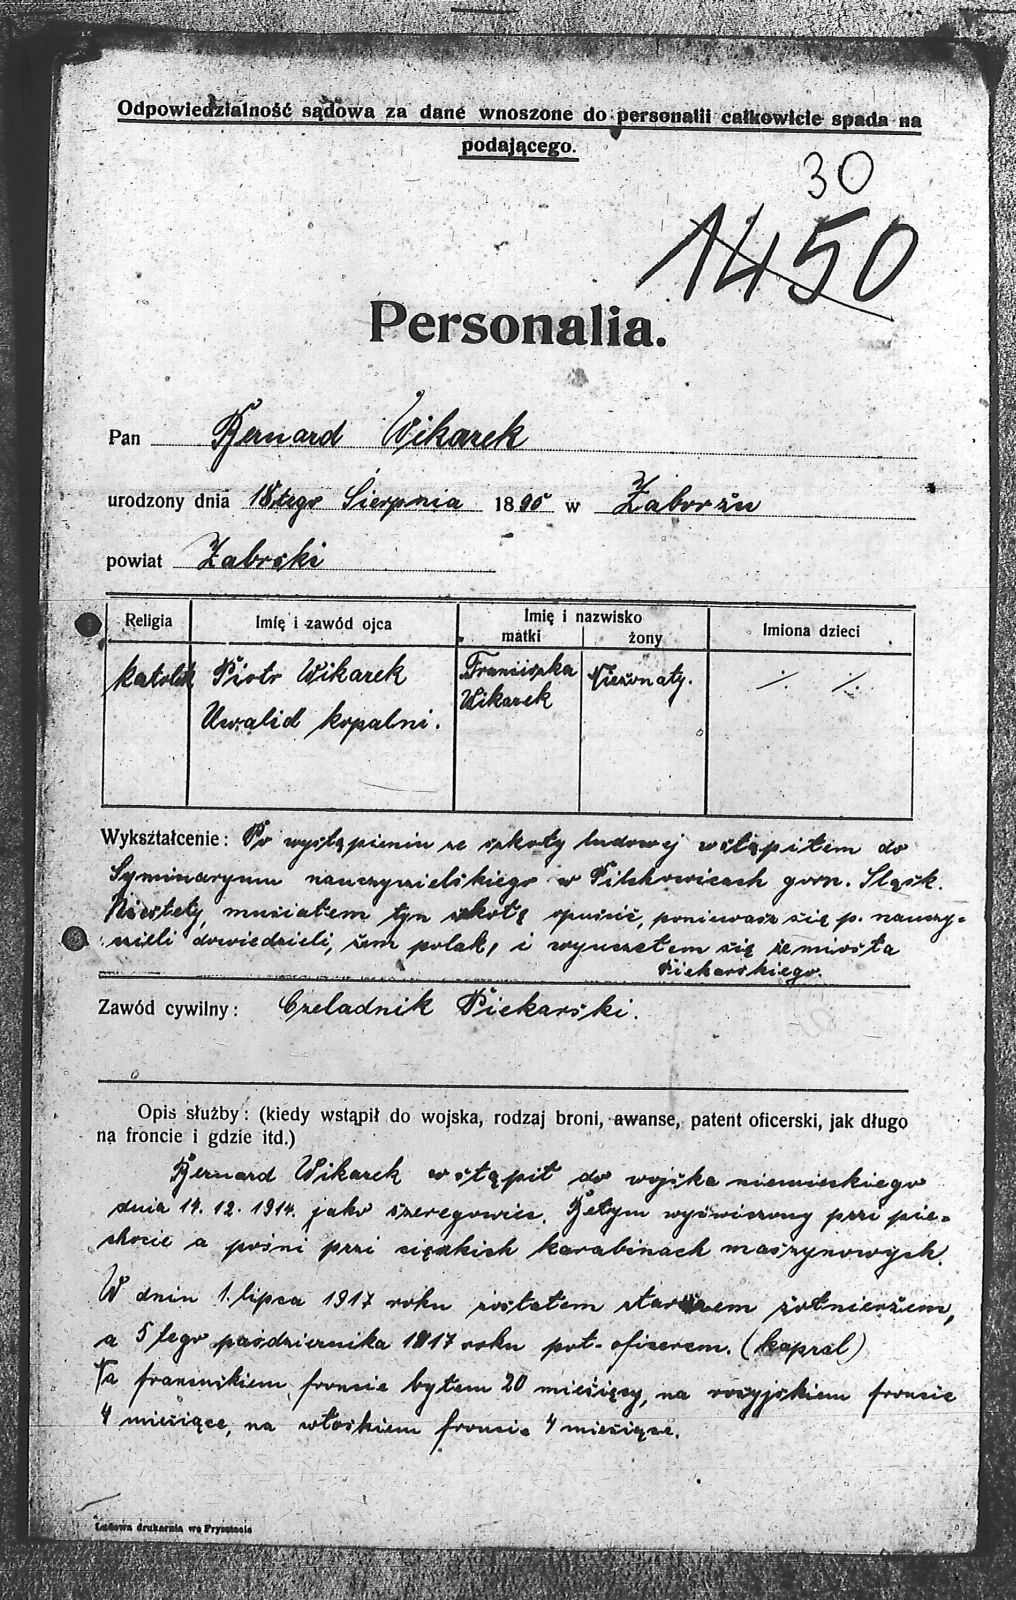 Odpowiedzialność sądowa za dane wnoszone do personalii całkowicie spada na
podającego.
30
1450
Personalia.
Pan Bernard Wikarek
urodzony dnia 18tego Sierpnia 1895 w Zaborzu
powiat Zabrski
Religia Imię i zawód ojca Imię i nazwisko matki żony Imiona dzieci
katolik Piotr Wikarek Franciszka Nieżonaty. ./. ./.
Uwalid kopalni. Wikarek
Wykształcenie: Po wystąpieniu ze szkoły ludowej wstąpiłem do
Syminaryum nauczycielskiego w Pilchowicach gorn. Sląsk.
Niestety, musiałem tyn szkołę opuścić, poniewasz się p. nauczy-
cieli dowiedzieli, żem polak, i wyuczełem się żemiosła
Piekarskiego.
Zawód cywilny: Czeladnik Piekarski.
Opis służby: (kiedy wstąpił do wojska, rodzaj broni, awanse, patent oficerski, jak długo
na froncie i gdzie itd.)
Bernard Wikarek wstąpił do wojska niemieckiego
dnia 14. 12. 1914. jako szeregowiec. Bełym wyświczony przi pie-
chocie a pośni przi cięzkich karabinach maszynowych.
W dniu 1. lipca 1917 roku zostałem starszem żołnierzem,
a 5 tego pasdziernika 1917 roku pot-oficerem. (kapral)
Na francuskiem froncie byłem 20 miesięcy, na rosyjskiem froncie
4 miesiące, na włoskiem froncie 4 miesiące.
Ludowa drukarnia we Frysztacie